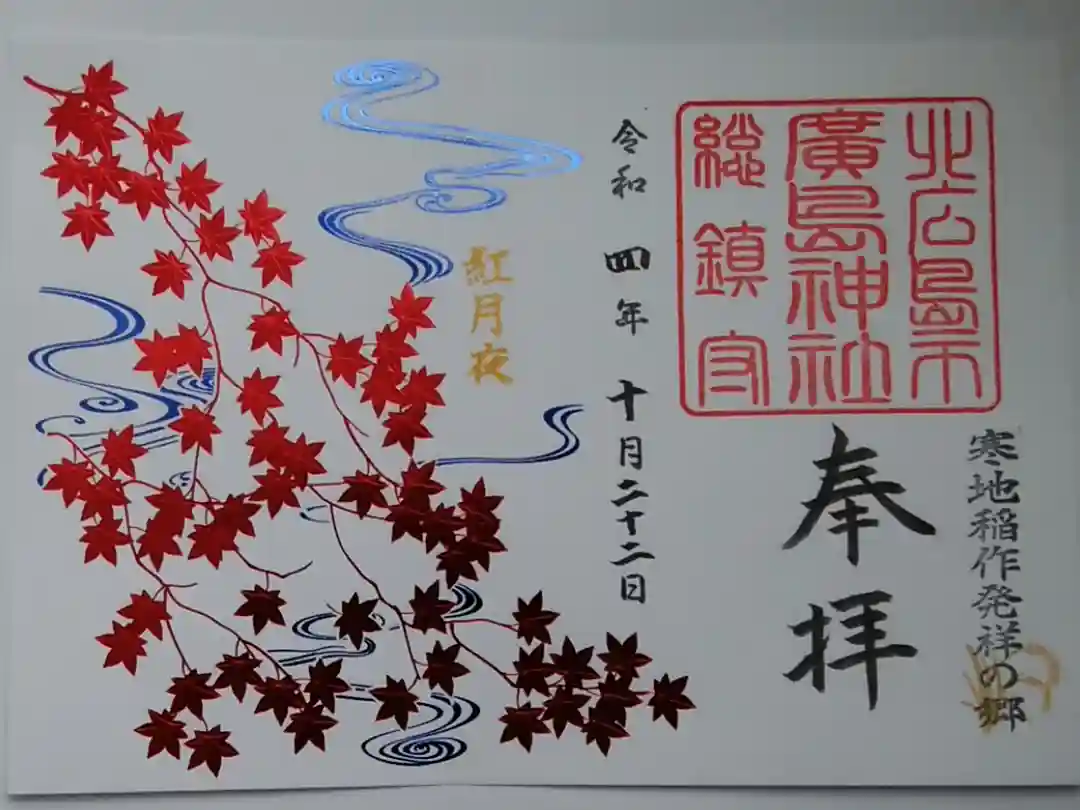 寒地稲作発祥の郷
北広島市
廣島神社
総鎮守
奉拝
令和四年十月二十二日
紅月夜